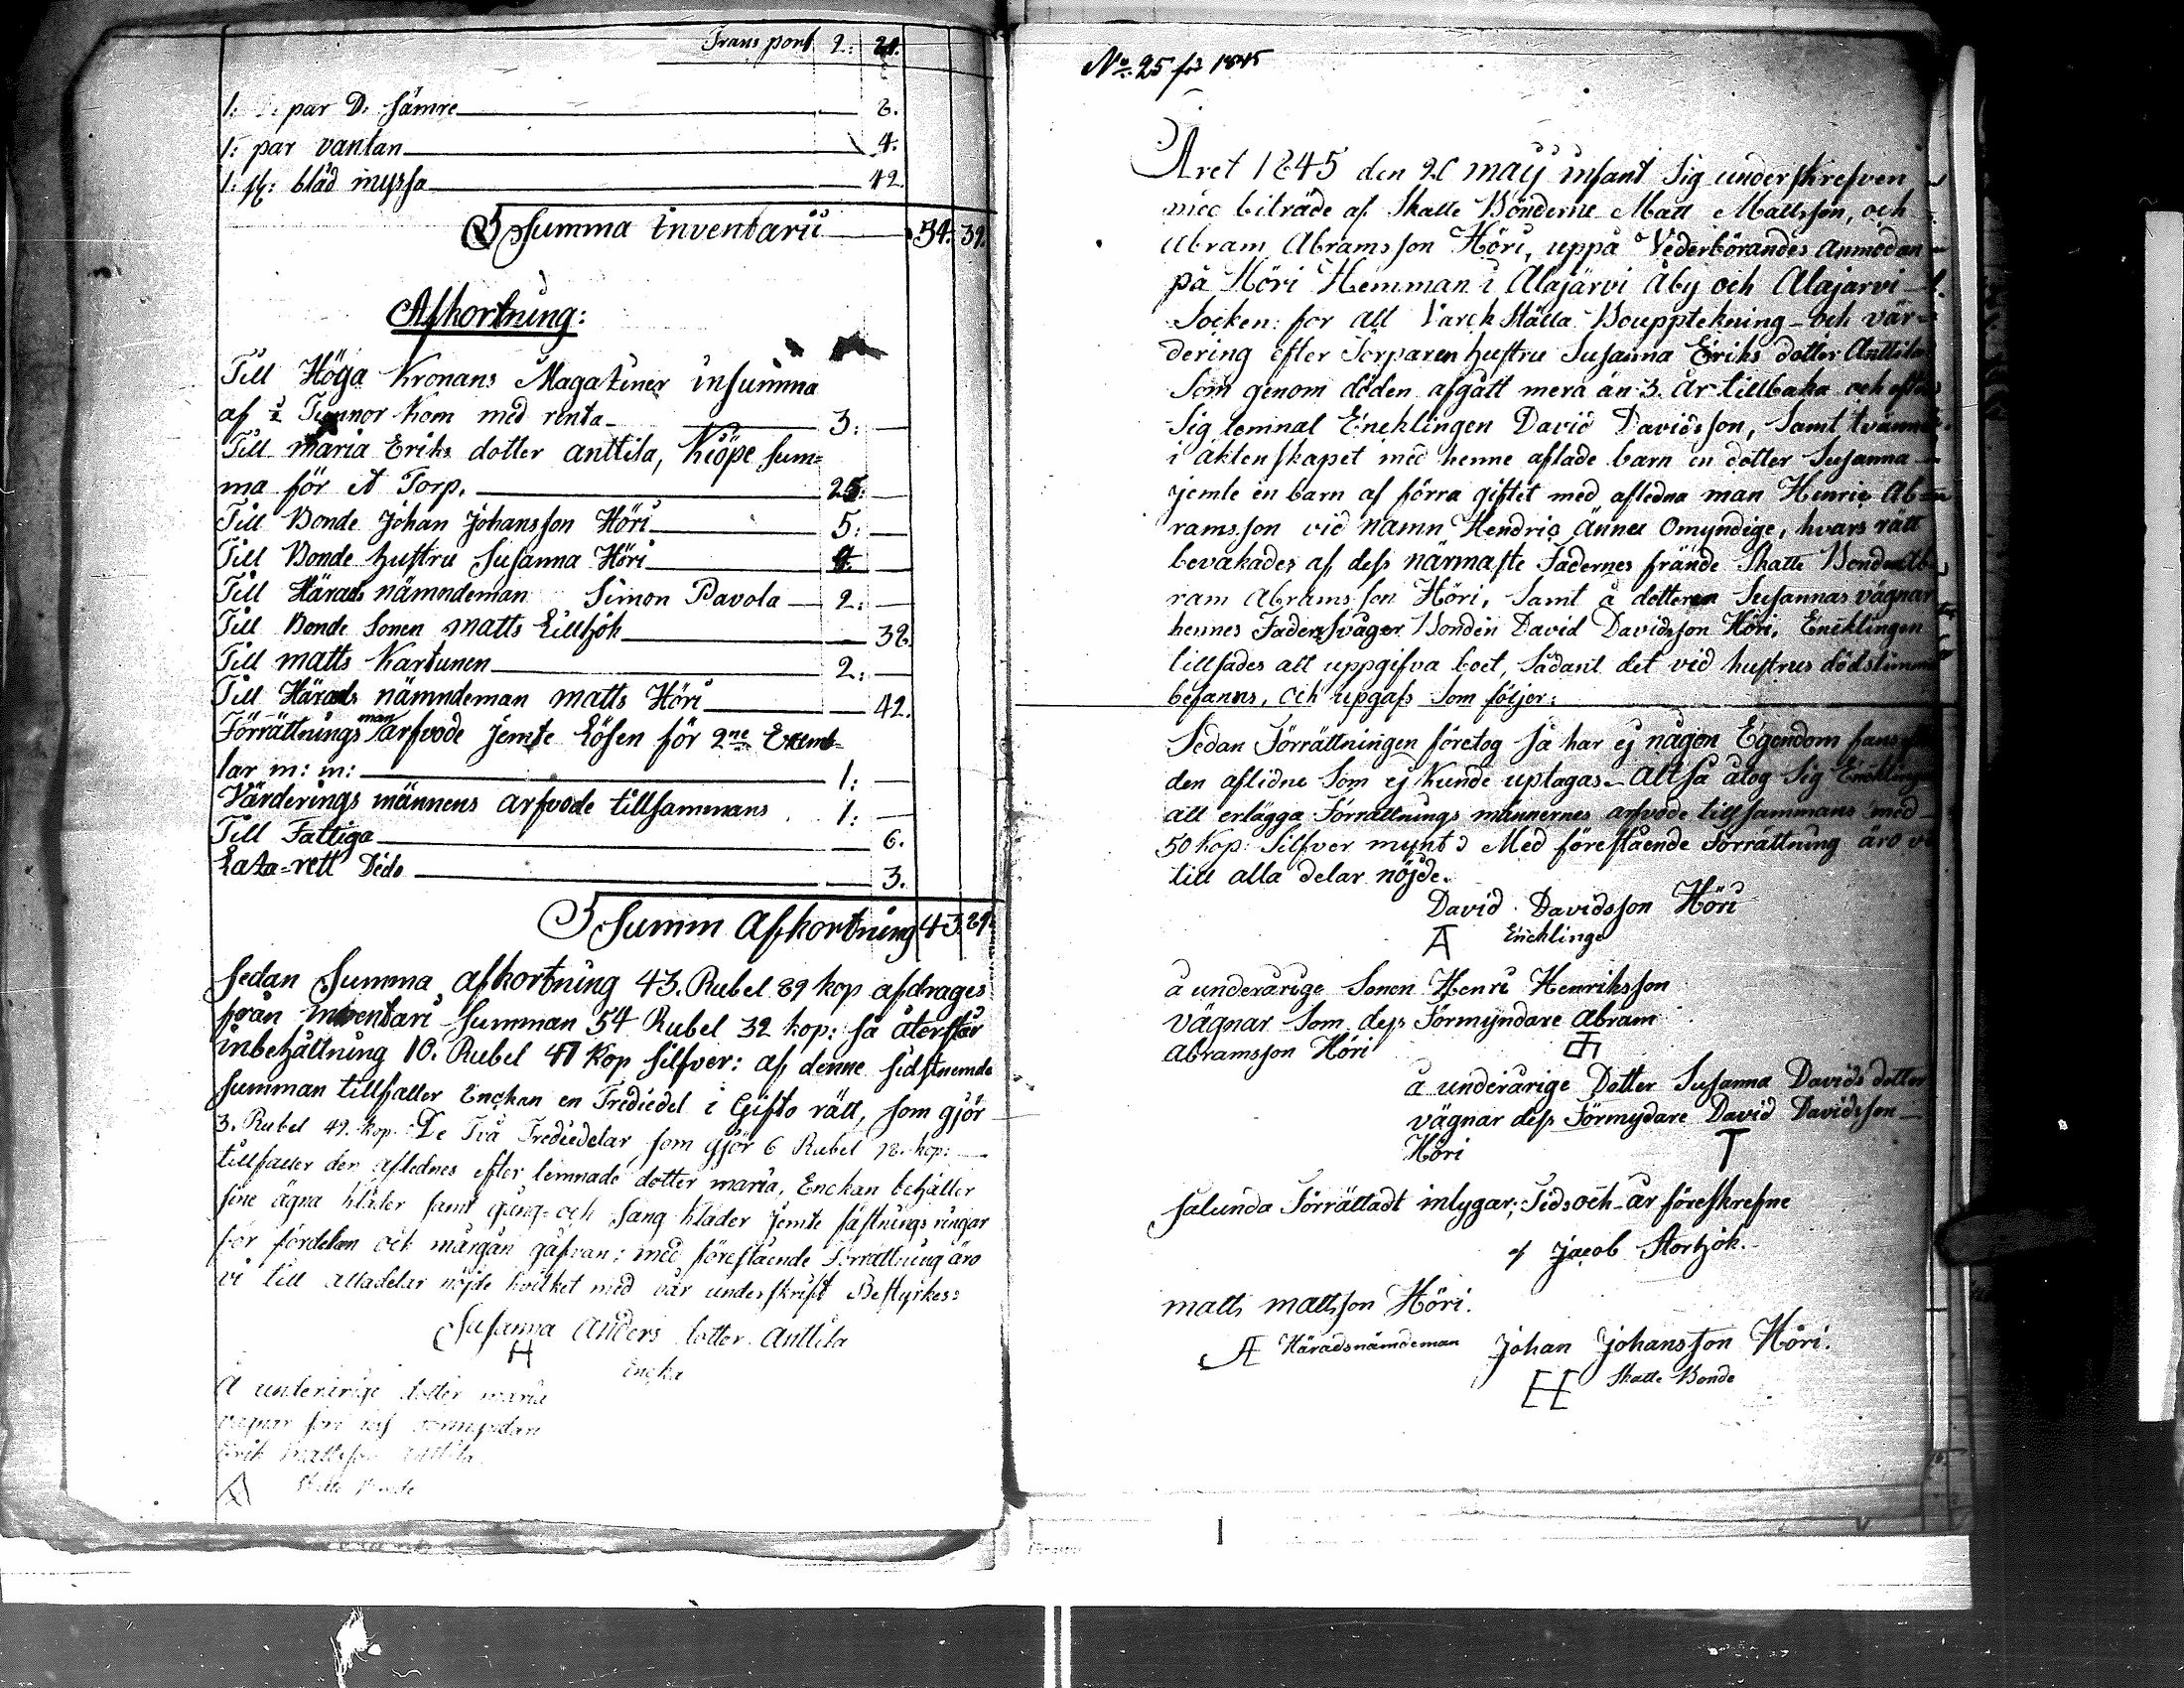 Transport 2: 21.
1: par D. sämre 8.
1: par vantan 4.
1: st: blåd myssa 42.
Summa inventarii 54. 32.
Afkortning:
Till Höga Kronans Magatiner insumma
af Tunnor Korn med renta 3:
Till maria Eriks dotter anttila, Kiöpe sum=
ma för et Torp. 25:
Till Bonde Johan Johansson Höri 5:
Till Bonde hustru Susanna Höri 4.
Till Härads nämndeman Simon Pavola 2:
Till Bonde Sonen Matts Lilltjok 38.
Till matts Kartunen 2:
Till Härads nämndeman matts Höri 42.
Förrättnings man arfvode jemte Lösen för 2ne Exemb=
lar m: m: 1:
Värderings männens arfvode tillsammans 1:
Till Fattiga 6.
Laza=rett Dido 3.
Summ Afkortning 43. 89.
Sedan Summa afkortning 43. Rubel 89 kop afdrages
från inventari Summan 54 Rubel 32 kop: så återstår
inbehållning 10. Rubel 41 Kop silfver: af denne sidstnemde
summan tillfaller Enckan en Trediedel i Gifto rätt, som gjör
3. Rubel 49. kop. De Två Trediedelar som gjör 6 Rubel 98. kop:
tillfaller den aflednes efter lemnade dotter maria, Enckan behåller
sine ägna kläder samt gång= och Sang kläder jemte fästnings ringar
för fördelen och märgån gåfvan: med föreställande Förrättning äro
vi till alladelar nöjde hvilket med vår underskrift Bestyrkes:
Susanna Anders dotter Anttila
Encka
Å underårige dotter maria
vägnar
Erik Mattsson Anttila
Skatte Bonde
No. 25 för 1845
Året 1845 den 20 may infant Sig underskrefven
med biträde af Skatte Bönderne Matt Mattsson, och
Abram Abramsson Höri, uppå Vederbörandes Anmodan
på Höri Hemman i Alajärvi åby och Alajärvi
Socken: for att Varck Ställa Boupptekning och vär=
dering efter Torparen hustru Susanna Eriks dotter Anttila
Som genom döden afgått mera än 3. år tillbaka och efter
Sig lemnat Eneklingen David Davidsson, Samt tvänne
i äktenskapet med henne aflade barn en dotter Susanna
jemte en barn af förra giftet med afledna man Henric Ab=
ramsson vid namn Hendric ännu Omyndige, hvars rätt
bevakades af dess närmaste Fadernes frände Skatte Bonden Ab
ram Abramsson Höri, Samt å dotteren Susannas vägnar
hennes Faders svåger Bonden David Davidsson Höri, Eneklingen
tillsades att uppgifva boet, sådant det vid hustrus dödstimma
befanns, och upgafs Som följer:
Sedan Förrättningen företog så har ej någon Egendom fans
den aflidne Som ej kunde uptagas. Altså åtog Sig Encklinge
att erlägga Förrättnings männernes arfvode tillsammans med
50 kop: Silfver mynt: Med förestående Förrättning äro vi
till alla delar nöjde.
David Davidsson Höri
Encklinge
å underårige Sonen Henri Henriksson
vägnar Som dess Förmyndare Abram
Abramsson Höri
å underårige Dotter Susanna Davids dotter
vägnar dess Förmydare David Davidsson
Höri
Salunda Förrättadt intygar; Tid och år föreskrefne
af Jacob Stortjok.
matts mattsson Höri.
Häradsnämdeman
Johan Johansson Höri.
Skatte Bonde